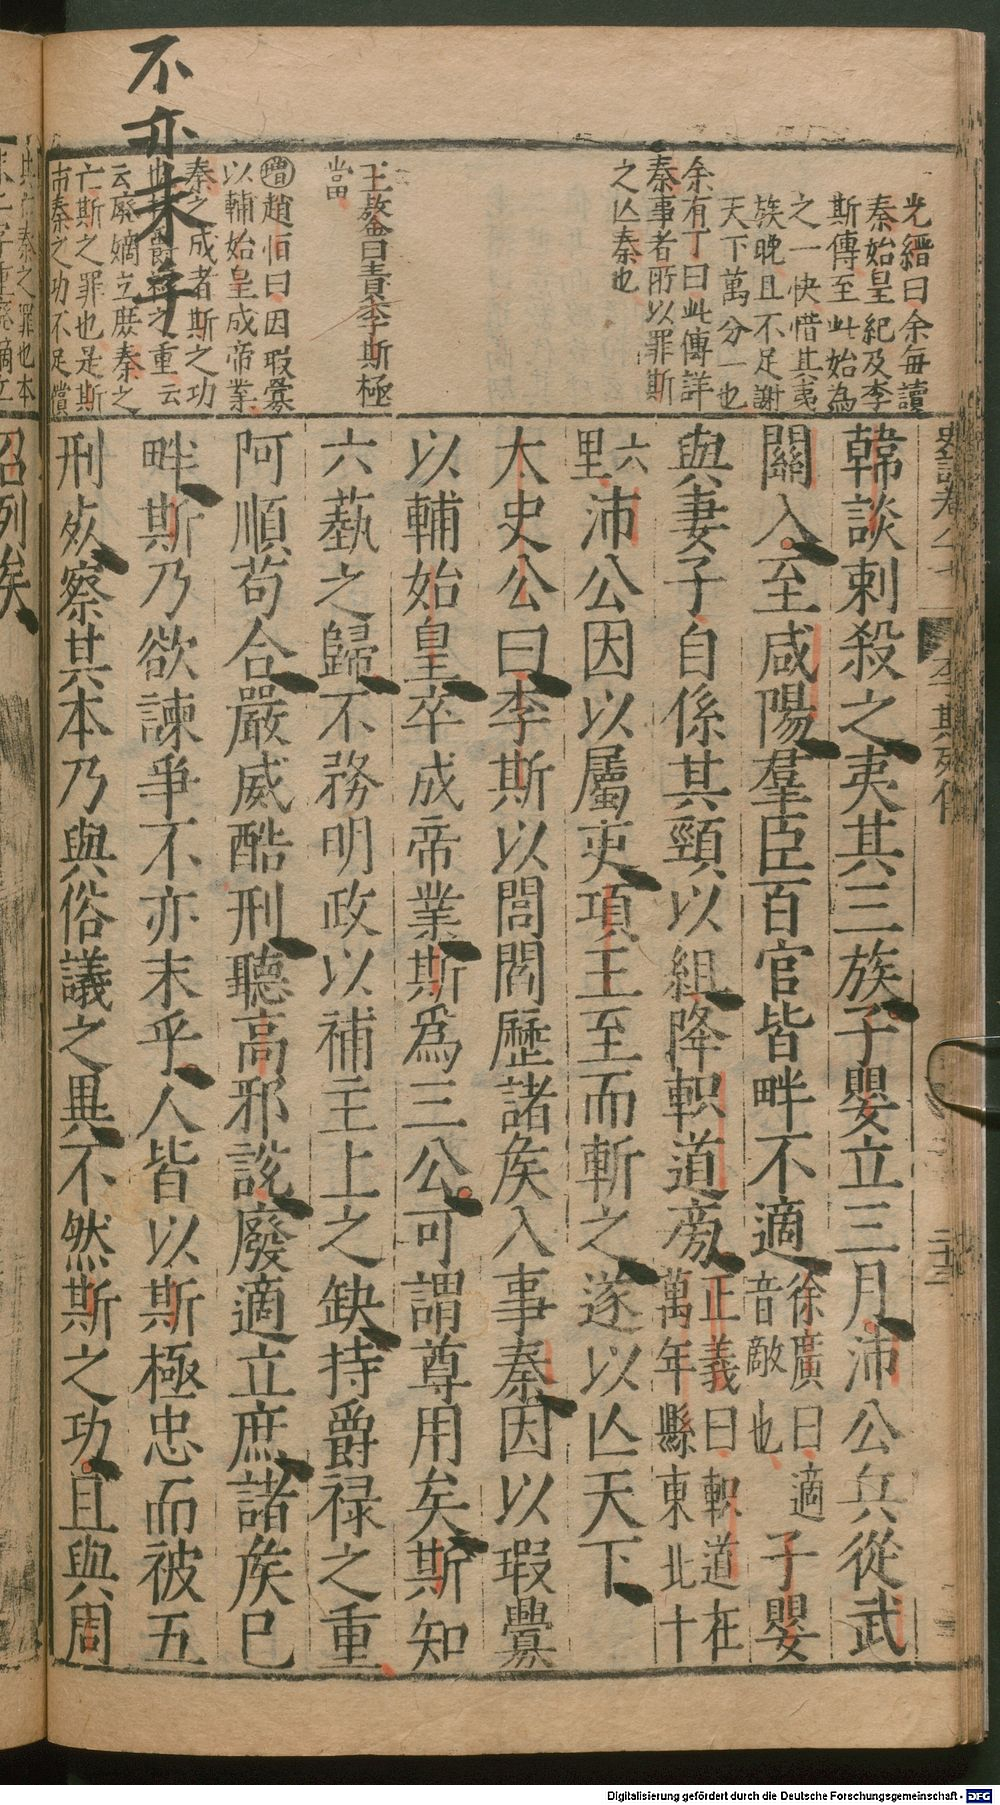 不亦末乎
光縉曰余每讀
秦始皇紀及李
斯傳至此始為
之一快惜其夷
族晚且不足謝
天下萬分一也
余有丁曰此傳詳
秦事者所以罪斯
之亾秦也
王鏊曰責李斯極
當
增趙恒曰因瑕釁
以輔始皇成帝業
秦之成者斯之功
爵祿之重云
云廢嫡立庶秦之
亡斯之罪也是斯
市秦之功不足償
史記卷八十
李斯列傳
韓談刺殺之夷其三族子嬰立三月沛公兵從武
關入至咸陽羣臣百官皆畔不適徐廣曰適音敵也子嬰
與妻子自係其頸以組降軹道旁正義曰軹道在萬年縣東北十
六里沛公因以屬吏項王至而斬之遂以亾天下
太史公曰李斯以閭閻歷諸矦入事秦因以瑕釁
以輔始皇卒成帝業斯爲三公可謂尊用矣斯知
六蓺之歸不務明政以補主上之缺持爵祿之重
阿順苟合嚴威酷刑聽高邪說廢適立庶諸矦已
畔斯乃欲諫爭不亦末乎人皆以斯極忠而被五
刑死察其本乃與俗議之異不然斯之功且與周
召列矣
Digitalisierung gefördert durch die Deutsche Forschungsgemeinschaft - DFG